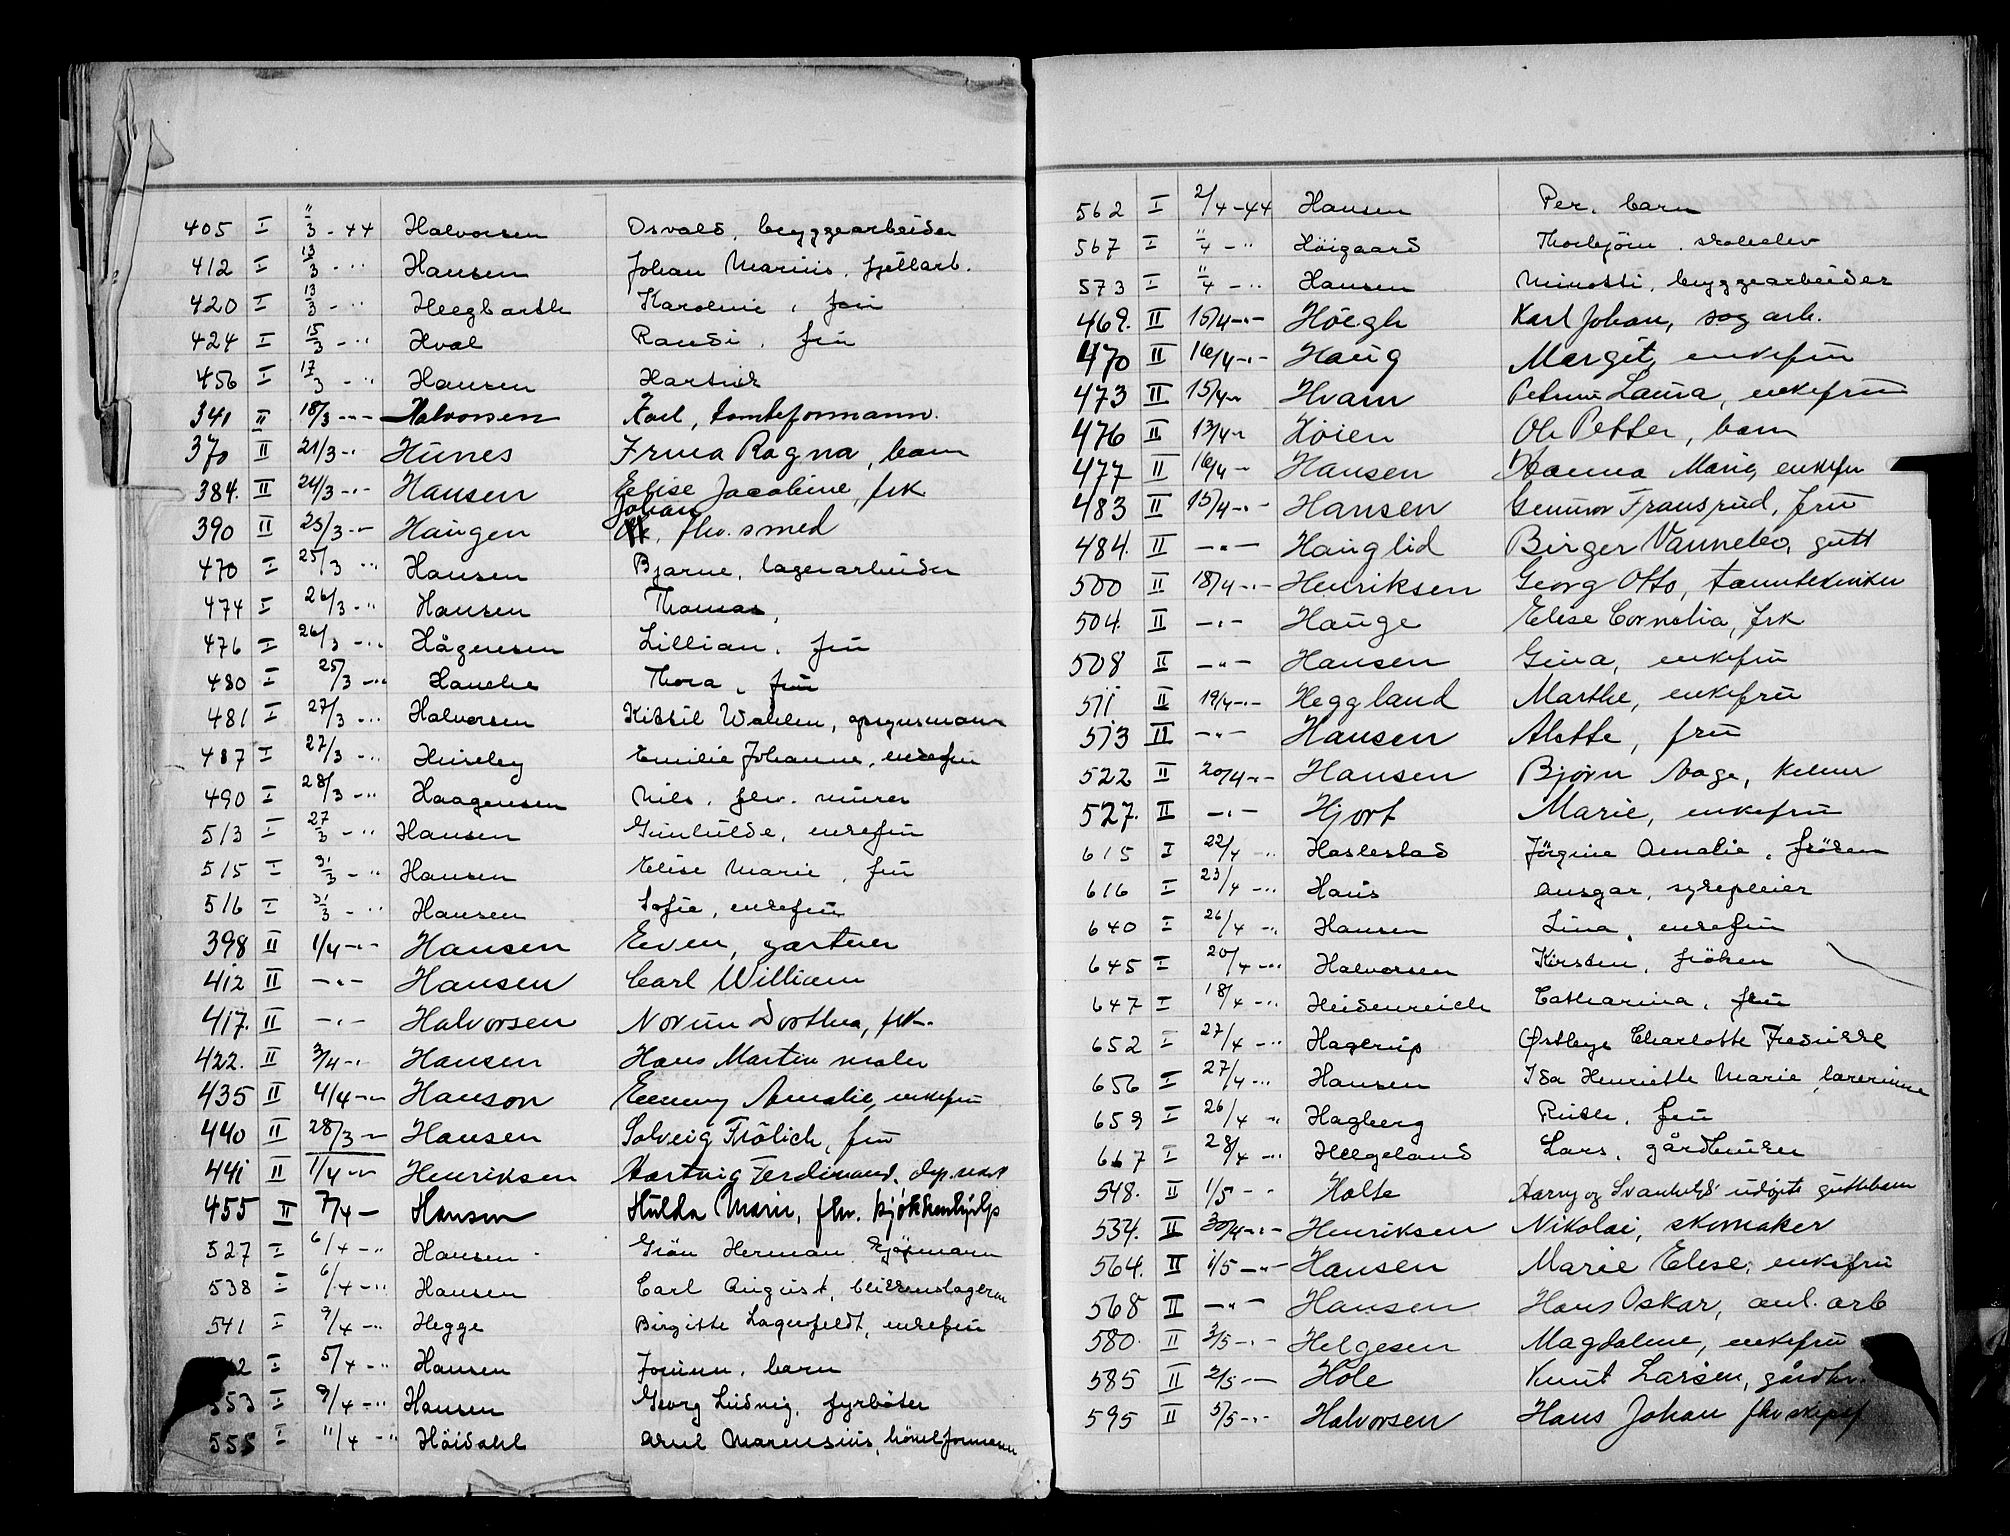 405 I 11/3 - 44 Halvorsen Osvald, bryggearbeider
412 I 13/3 - " Hansen Johan Marius, fjellarb.
420 I 13/3 - " Heegbarth Karoline, fru
424 I 15/3 - " Hval Randi, fru
456 I 17/3 - " Hansen Hartvik
341 II 18/3 -"- Halvorsen Karl, tomteformann.
370 II 21/3 -"- Hunes Irma Ragna, barn
384. II 21/3 -"- Hansen Elise Jacobine, frk
Johan
390 II 25/3 -"- Haugen fhv. smed
470 I 25/3 - " Hansen Bjarne, lagerarbeider
474 I 26/3 - " Hansen Thomas,
476 I 26/3 - " Hågensen Lillian, fru
480 I 25/3 - " Hanche Thora, fru
481 I 27/3 - " Halvorsen Kittil Wahlen, opsynsmann
487 I 27/3 - " Huseby Emilie Johanne, enkefru
490 I 28/3 - " Haagensen Nils, fhv. murer
513 I 27/3 - " Hansen Gunhilde, enkefru
515 I 31/3 - " Hansen Elise Marie, fru
516 I 31/3 - " Hansen Sofie, enkefru
398 II 1/4 -"- Hansen Even, gartner
412 II -"- Hansen Carl William
417. II -"- Halvorsen Norun Dorthea, frk.
422. II 3/4 -"- Hansen Hans Martin maler
435 II 4/4 -"- Hanson Emmy Amalie, enkefru
440 II 28/3 -"- Hansen Solveig Frölich, fru
441 II 1/4 -"- Henriksen Hartvig Ferdinand, dep. sekr
455 II 7/4 - Hansen Hulda Marie, fhv. kjøkkenhjelp
527 I 6/4 - " Hansen Grön Herman kjøpmann
538 I 6/4 - " Hansen Carl August, blikkenslagerm
541 I 9/4 - " Hegge Birgitte Lagerfeldt, enkefru
I 5/4 - " Hansen Jorunn, barn
553 I 9/4 - " Hansen Georg Ludvig, fyrböter
555 I 11/4 - " Höidahl Arnt Marensius, formann
562 I 2/4 - 44 Hansen Per, barn
567 I 11/4 - " Höigaard Thorbjörn, skoleelev
573 I 11/4 - " Hansen Minotti, bryggearbeider
469. II 15/4 -"- Höegh Karl Johan, sag arb.
470 II 16/4 -"- Haug Margit, enkefru
473 II 15/4 -"- Hvam Petrine Laura, enkefru
476 II 13/4 -"- Höien Ole Petter, barn
477 II 16/4 -"- Hansen Hanna Marie, enkefru
483 II 15/4 -"- Hansen Gunvor Fransrud, fru
484. II -"- Hauglid Birger Vannebo, gutt
500 II 18/4 -"- Henriksen Georg Otto, tanntekniker
504. II -"- Hauge Elise Cornelia, frk
508 II -"- Hansen Gina, enkefru
511 II 19/4 -"- Heggland Marthe, enkefru
513 II -"- Hansen Alette, fru
522 II 20/4 -"- Hansen Bjørn Aage, Kelner
527. II -"- Hjort Marie, enkefru
615 I 22/4 - " Haslestad Jörgine Amalie, fröken
616 I 23/4 - " Haus Ansgar, sykepleier
640 I 26/4 - " Hansen Lina, enkefru
645 I 20/4 - " Halvorsen Kirsten, fröken
647 I 18/4 - " Heidenreich Catharina, fru
652 I 27/4 - " Hagerup Østbye Charlotte Fredrikke
656 I 27/4 - " Hansen Ida Henriette Marie lærerinne
659 I 26/4 - " Hagberg Ruth, fru
667 I 28/4 - " Helgeland Lars, gårdbruker
548. II 1/5 - " Holte Harry og Svanhild's udöpte guttebarn
534. II 30/4 -"- Henriksen Nikolai, skomaker
564. II 1/5 -"- Hansen Marie Elise, enkefru
568 II -"- Hansen Hans Oskar, anl. arb
580. II 3/5 -"- Helgesen Magdalene, enkefru
585 II 2/5 -"- Hole Knut Larsen, gårdbr.
595 II 5/5 -"- Halvorsen Hans Johan fhv skipsf